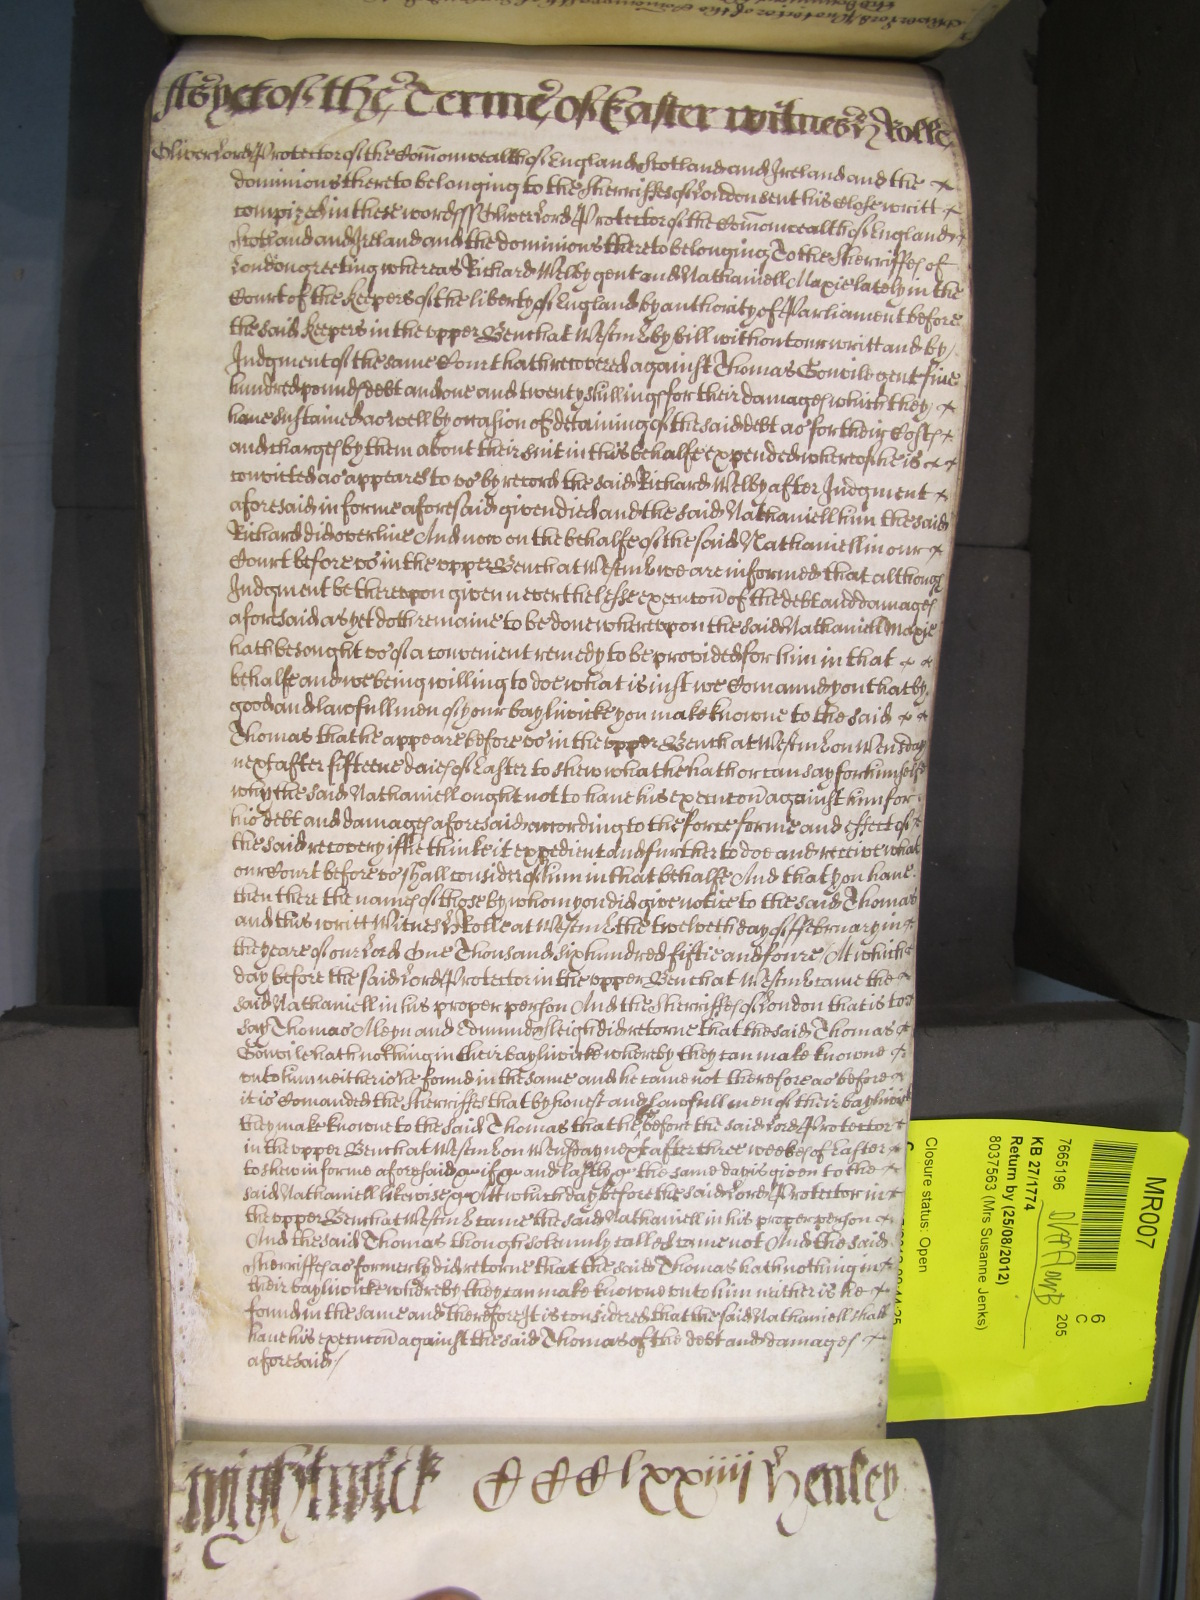 As yet of the Terme of Easter witnes H Rolle
Oliver Lord Protector of the Comonwealth of England Scotland and Ireland and the
dominions thereto belonging to the Sherriffes of London sent his close writt
comprized in these words ss Oliver Lord Protector of the Comonwealth of England
Scotland and Ireland and the dominions thereto belonging To the Sherriffes of
London greeting whereas Richard Welby gent and Nathaniell Maxie lately in the
Court of the keepers of the liberty of England by anthority of Parliament before
the said keepers in the upper Bench at Westmr by bill without our writt and by
Judgment of the same Court hath recovered against Thomas Bonvile gent five
hundred pounds debt and one and twenty shillings for their damages which they
have sustained as well by occasion of detaining of the said debt as for their Costs
and charges by them about their suit in this behalfe expended whereof he is
convicted as appeares to us by record the said Richard Welby after Judgment
aforesaid in forme aforesaid given died and the said Nathaniell him the said
Richard did overlive And now on the behalfe of the said Nathaniell in our
Court before us in the upper Bench at Westmr we are informed that although
Judgment be thereupon given neverthelesse execucon of the debt and damages
aforesaid as yet doth remaine to be done whereupon the said Nathaniell Maxie
hath besought us of a convenient remedy to be provided for him in that
behalfe and we being willing to doe what is just we Comannd you that by
good and lawfull men of your bayliwicke you make knowne to the said
Thomas that he appeare before us in the upper Bench at Westmr on Wensday
next after fifteene daies of Easter to shew what he hath or can say for himselfe
why the said Nathaniell ought not to have his execucon against him for
his debt and damages aforesaid according to the force forme and effect of
the said recovery if he thinke it expedient and further to doe and receive what
our Court before us shall consider of him in that behalfe And that you have
then there the names of those by whom you did give notice to the said Thomas
and this writt Witnes H Rolle at Westmr the twelveth day of ffebruary in
the yeare of our Lord One Thousand six hundred fiftie and foure At which
day before the said Lord Protector in the upper Bench at Westmr came the
said Nathaniell in his proper person And the Sherriffes of London that is to
say Thomas Aleyn and Edmund Sleigh did retorne that the said Thomas
Bonvile hath nothing in their bayliwicke whereby they can make knowne
unto him neither is he found in the same and he came not therefore as before
it is Comanded the Sherriffes that by honest and lawfull men of their bayliwick
they make knowne to the said Thomas that he before the said Lord Protector
in the upper Bench at Westmr on Wensday next after three weekes of Easter
to shew in forme aforesaid if and lastly the same day is given to the
said Nathaniell likewise At which day before the said Lord Protector in
the upper Bench at Westmr came the said Nathaniell in his proper person
And the said Thomas though solemnly called came not And the said
Sherriffes as formerly did retorne that the said Thomas hath nothing in
their bayliwicke whereby they can make knowne unto him neither is he
found in the same and therefore It is considered that the said Nathaniell shall
have his execucon against the said Thomas of the debt and damages
aforesaid
Wightwick CCClxxiiii Henley
MR007
6
C
205
7665196
KB 27/1774
Return by (25/08/2012)
8037563 (Mrs Susanne Jenks)
Closure status: Open